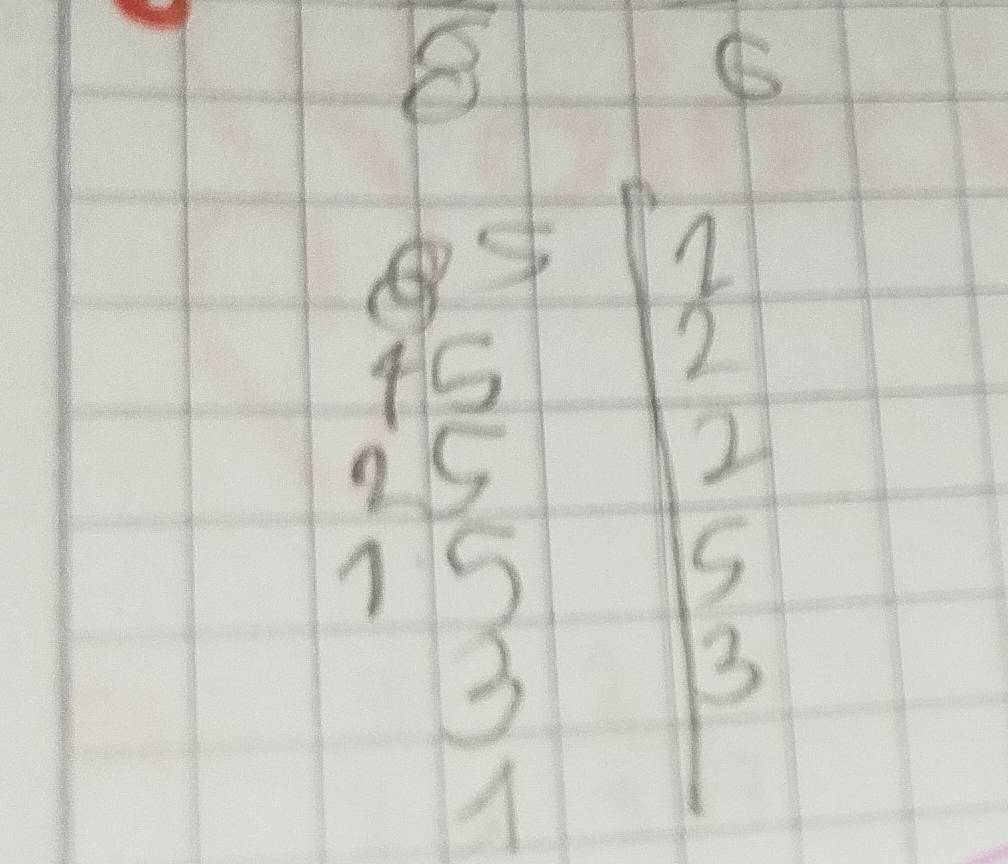 8 6
8 5 1
15 2
25 2
15 5
3 3
1